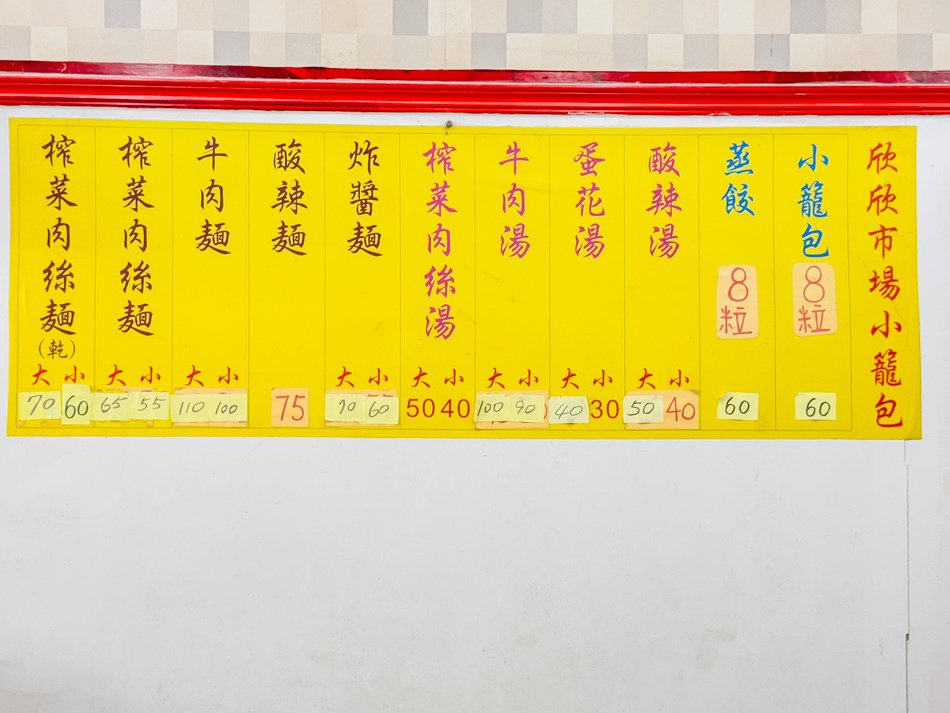 欣欣市場小籠包
小籠包
8粒
60
蒸餃
8粒
60
酸辣湯
大 小
50 40
蛋花湯
大 小
40 30
牛肉湯
大 小
100 90
榨菜肉絲湯
大 小
50 40
炸醬麵
大 小
70 60
酸辣麵
75
牛肉麵
大 小
110 100
榨菜肉絲麵
大 小
65 55
榨菜肉絲麵(乾)
大 小
70 60